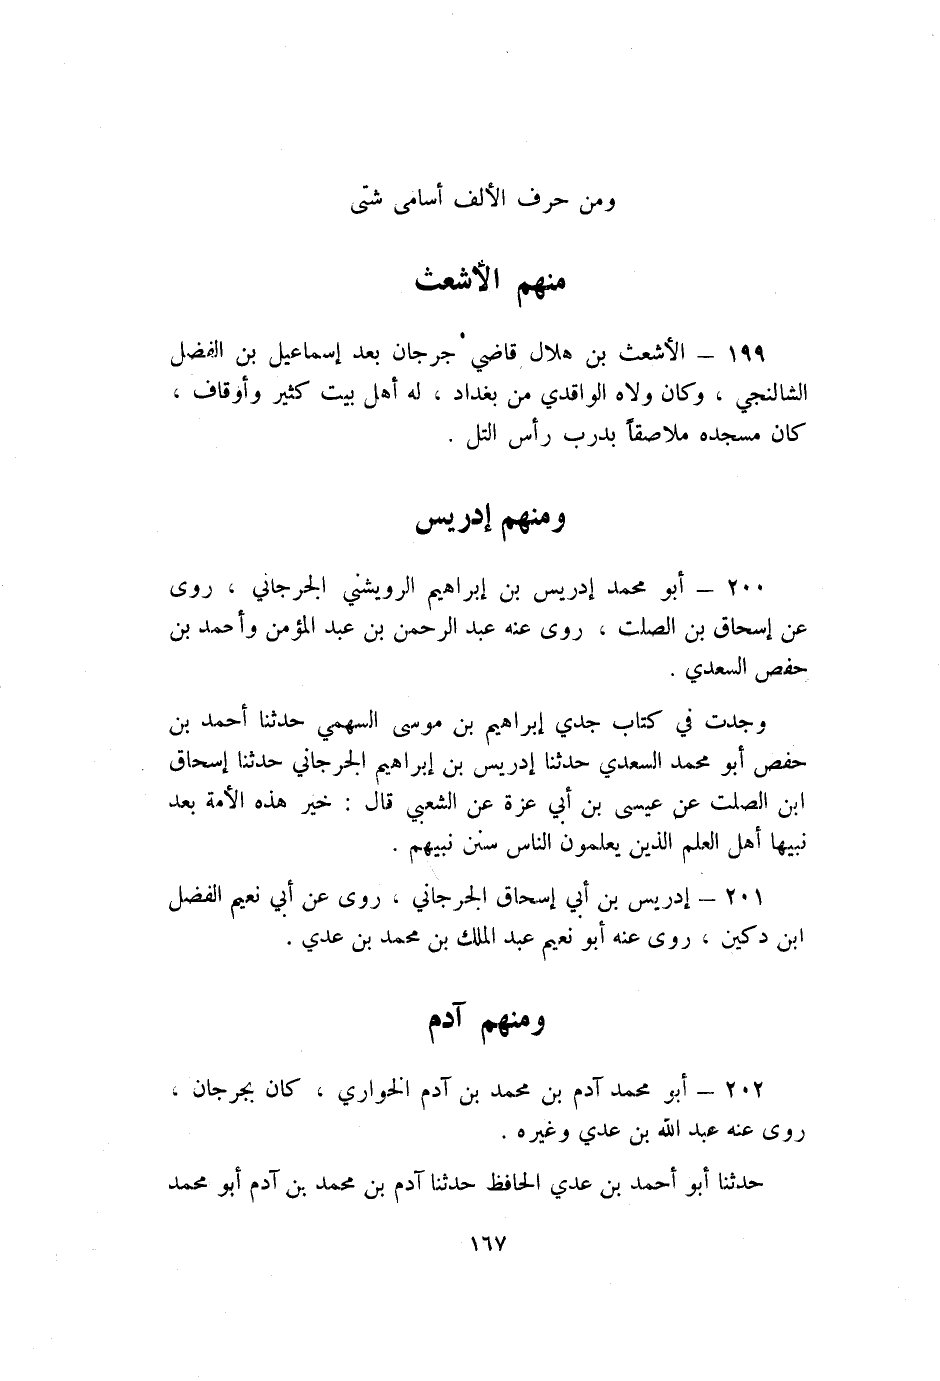 ومن حرف الألف أسامى شتى
منهم الأشعث
١٩٩ – الأشعث بن هلال قاضي جرجان بعد إسماعيل بن الفضل
الشالنجي ، وكان ولاه الواقدي من بغداد ، له أهل بيت كثير وأوقاف ،
كان مسجده ملاصقاً بدرب رأس التل .
ومنهم إدريس
٢٠٠ – أبو محمد إدريس بن إبراهيم الرويشني الجرجاني ، روى
عن إسحاق بن الصلت ، روى عنه عبد الرحمن بن عبد المؤمن وأحمد بن
حفص السعدي .
وجدت في كتاب جدي إبراهيم بن موسى السهمي حدثنا أحمد بن
حفص أبو محمد السعدي حدثنا إدريس بن إبراهيم الجرجاني حدثنا إسحاق
ابن الصلت عن عيسى بن أبي عزة عن الشعبي قال : خير هذه الأمة بعد
نبيها أهل العلم الذين يعلمون الناس سنن نبيهم .
٢٠١ – إدريس بن أبي إسحاق الجرجاني ، روى عن أبي نعيم الفضل
ابن دكين ، روى عنه أبو نعيم عبد الملك بن محمد بن عدي .
ومنهم آدم
٢٠٢ – أبو محمد آدم بن محمد بن آدم الخواري ، كان بجرجان ،
روى عنه عبد الله بن عدي وغيره .
حدثنا أبو أحمد بن عدي الحافظ حدثنا آدم بن محمد بن آدم أبو محمد
١٦٧